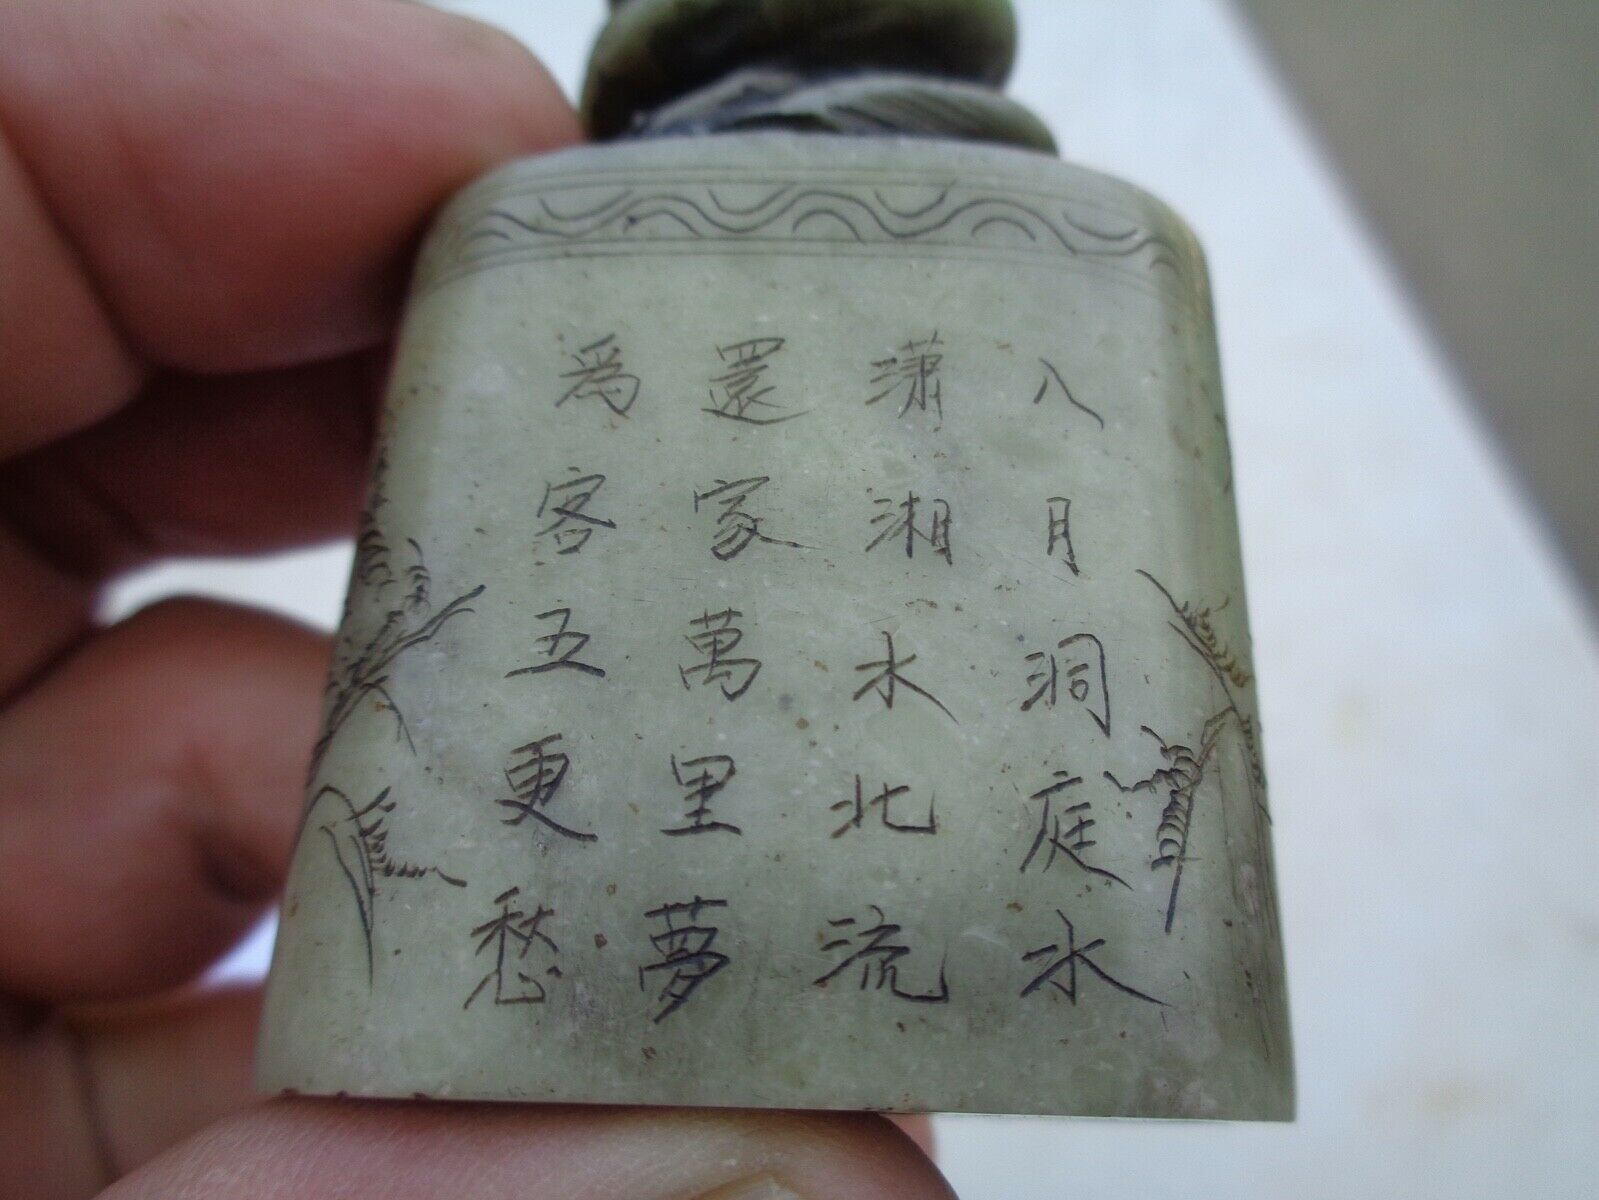 八月洞庭水
瀟湘水北流
還家萬里夢
爲客五更愁